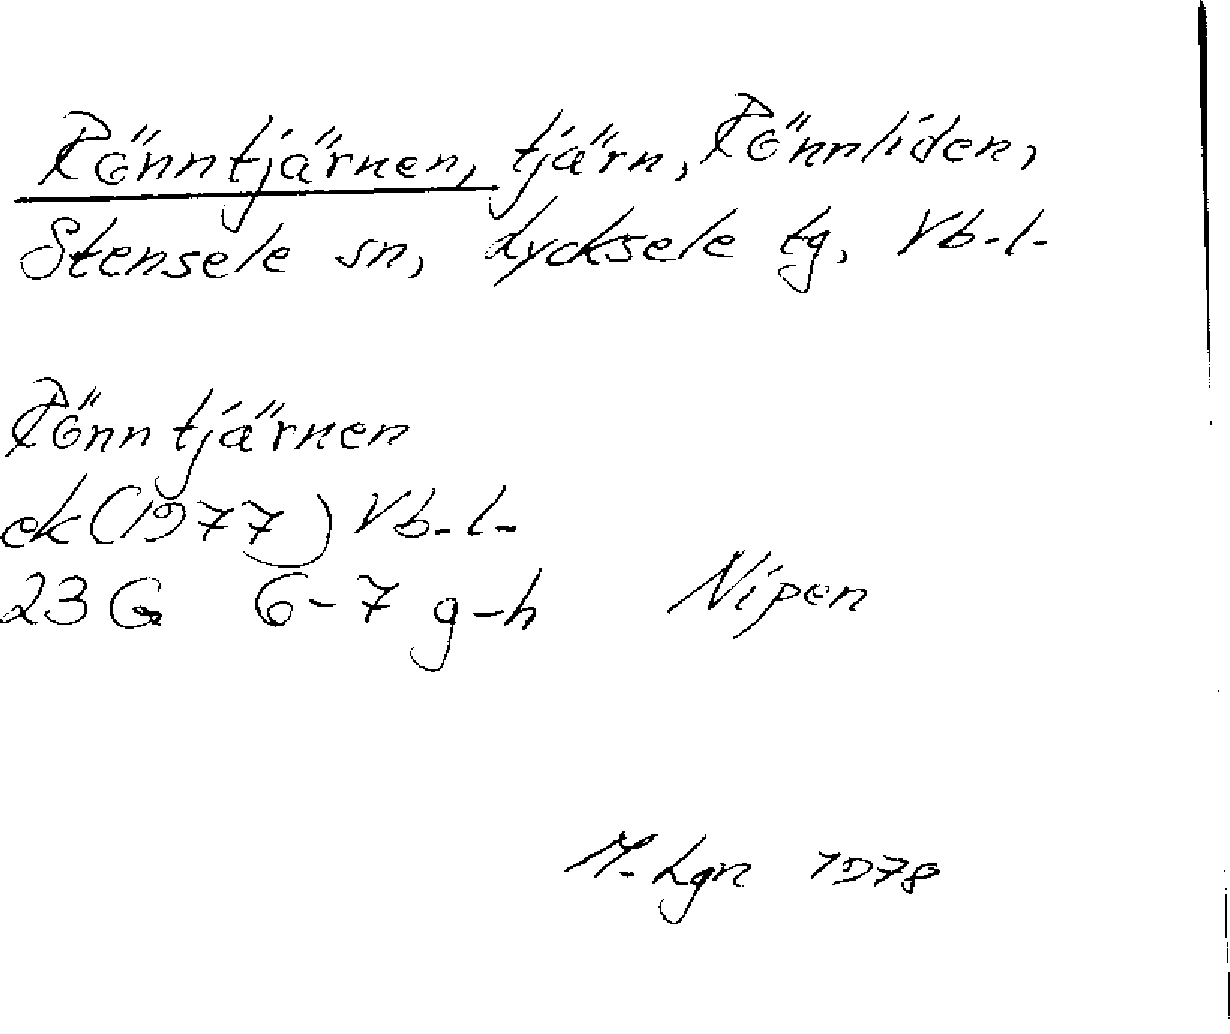 Rönntjärnen, tjärn, Rönnliden,
Stensele sn, Lycksele tg, Vb-l-
Rönntjärnen
ek (1977) Vb-l-
23 G 6-7 g-h Nipen
M-Lgn 1978